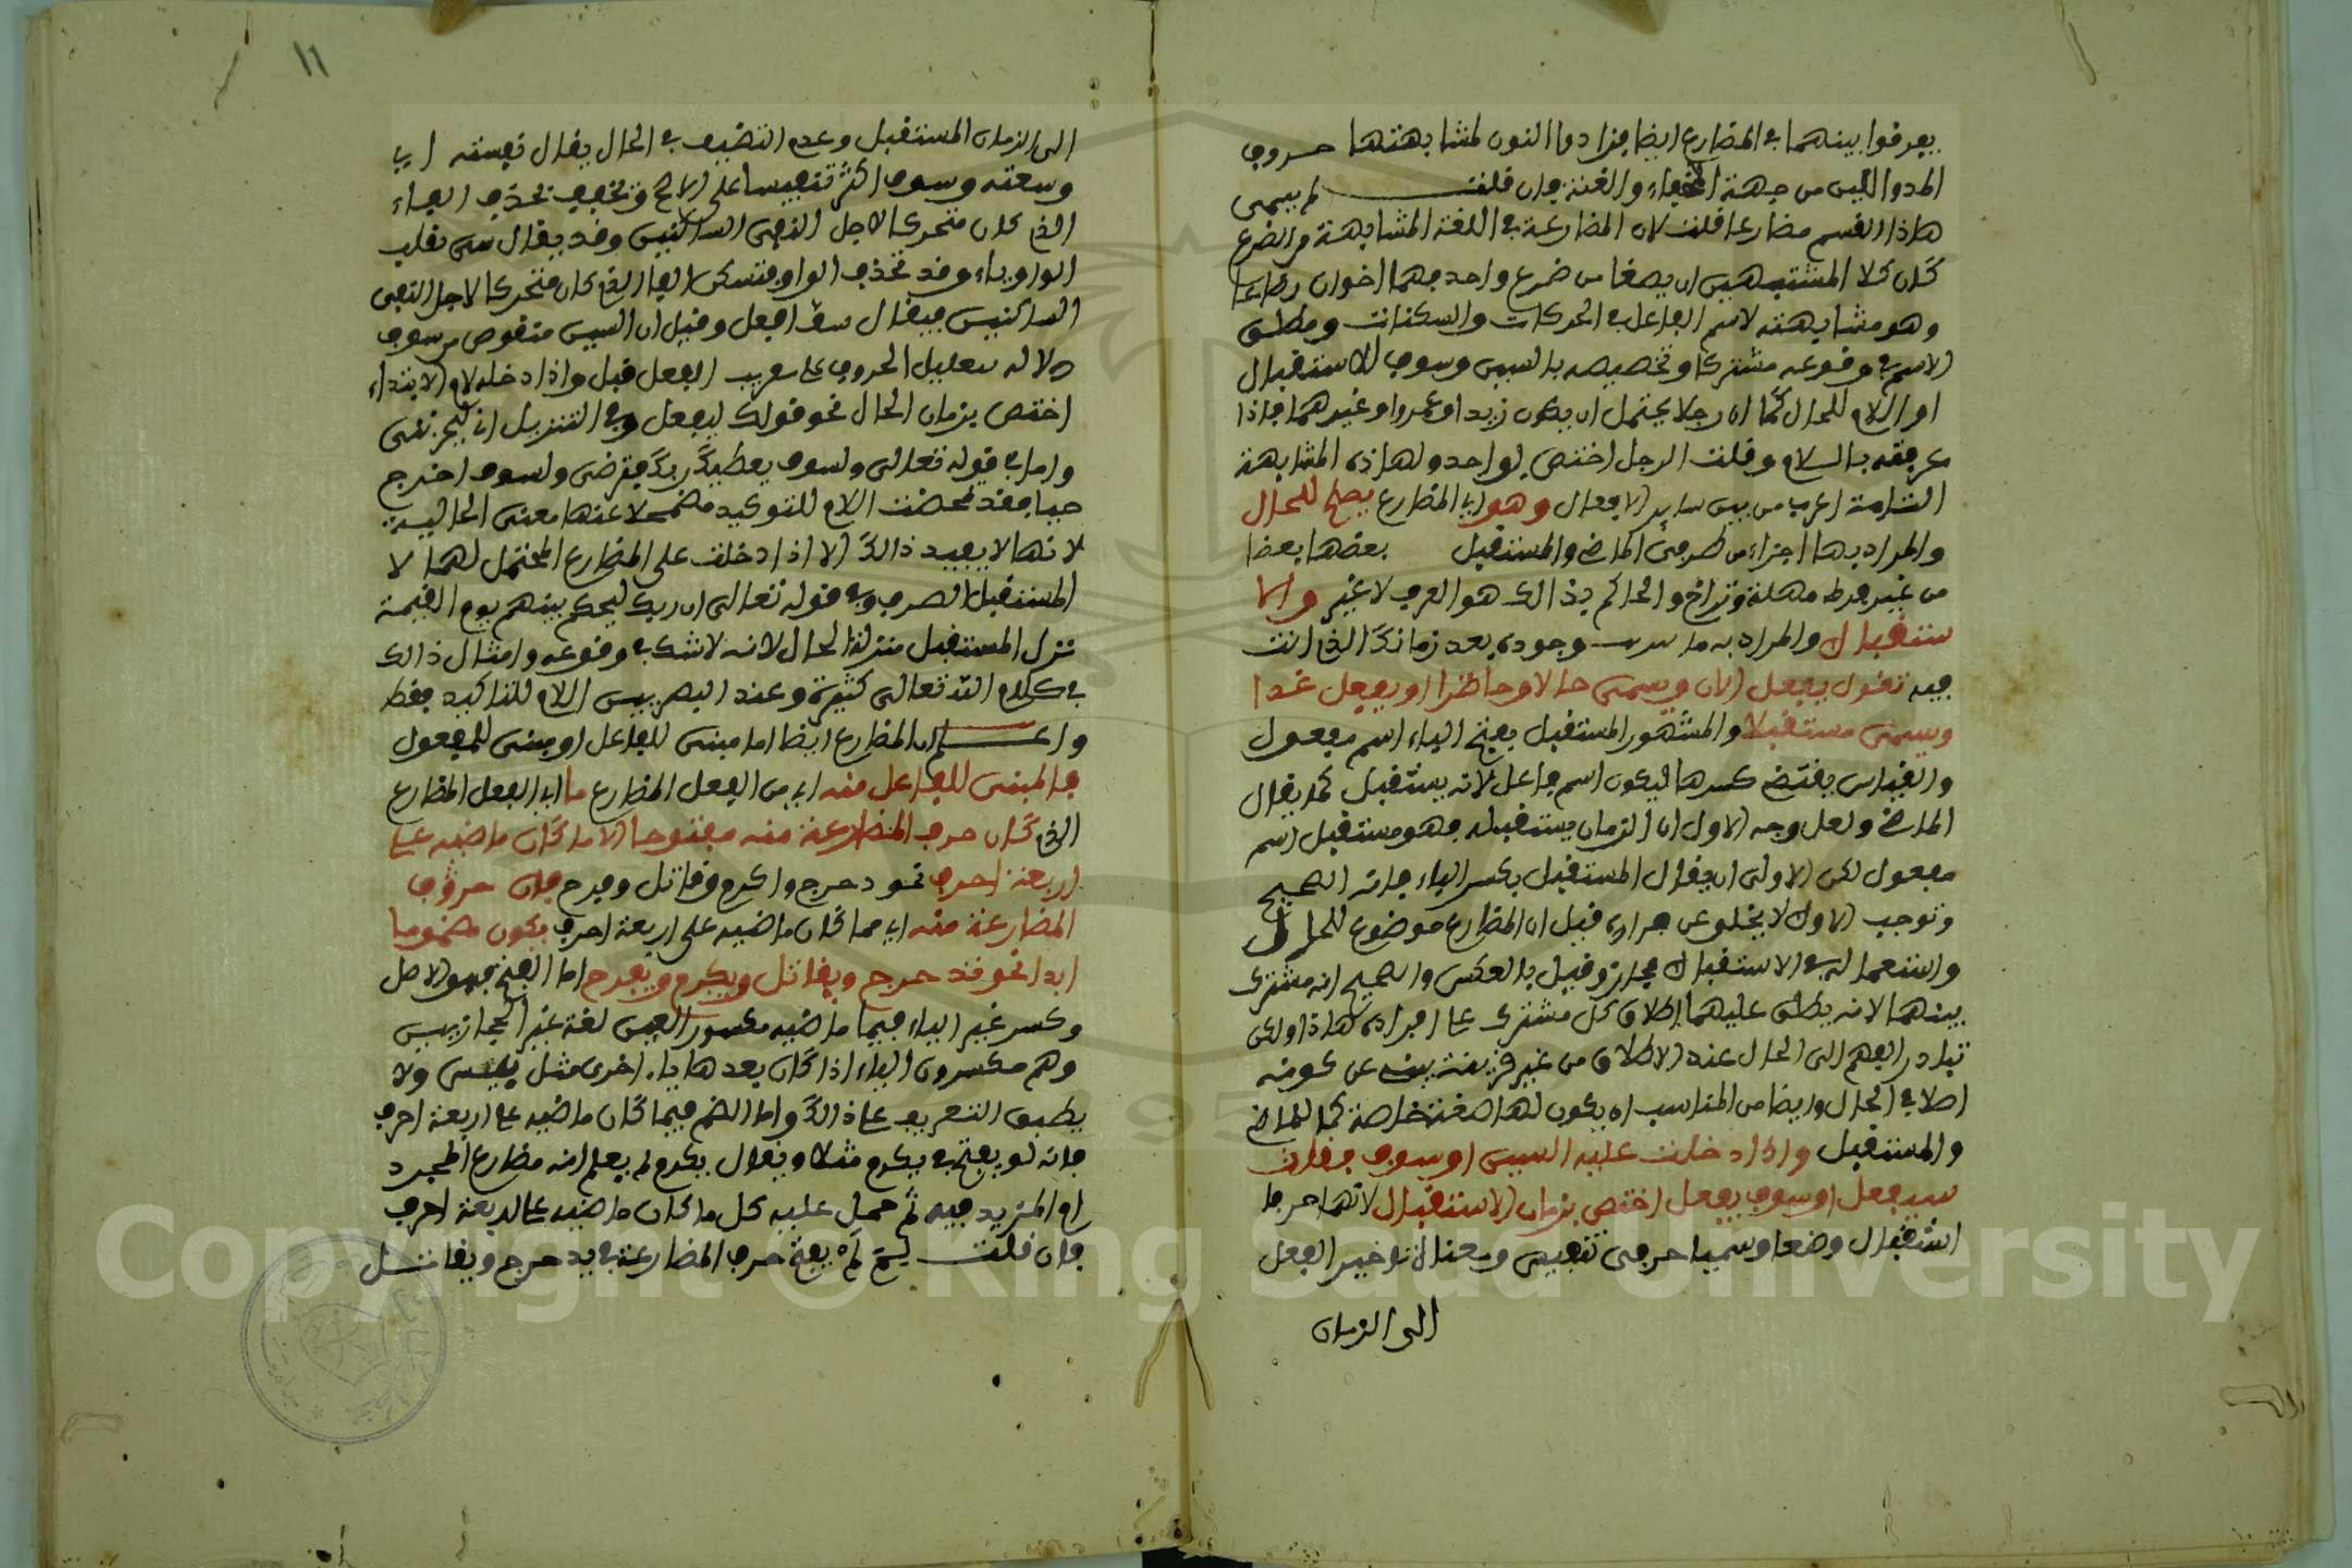 يفرقوا بينهما في المضارع ايضا فزادوا النون لمشابهتها حروف
المد واللين من جهة الخفاء والغنة فان قلت لم يسمى
هاذا القسم مضارعا قلت لان المضارعة في اللغة المشابهة من الضرع
كان كلا المشتبهين ارتضعا من ضرع واحد فهما اخوان رضاعا
وهو مشابهته لاسم الفاعل في الحركات والسكنات ومطلق
الاسم في وقوعه مشتركا وتخصيصه بالسين وسوف للاستقبال
او اللام للحال كما ان رجلا يحتمل ان يكون زيدا او عمروا وغيرهما فاذا
عرفته باللام وقلت الرجل اختص بواحد ولهاذه المشابهة
التامة اعرب من بين ساير الافعال وهو اي المضارع يصلح للحال
والمراد بها اجزاء من طرفي الماضي والمستقبل بعضها بعضا
من غير فرط مهلة وتراخ والحاكم بذالك هو العرف لا غير والا
ستقبال والمراد به ما وجوده بعد زمانك الذي انت
فيه تقول يفعل الان ويسمى حالا وحاضرا او يفعل غدا
ويسمى مستقبلا والمشهور المستقبل بفتح الباء اسم مفعول
والقياس يقتضي كسرها ليكون اسم فاعل لانه يستقبل كما يقال
الماضي ولعل وجه الاول ان الزمان يستقبله فهو مستقبل اسم
مفعول لكن الاولى ان يقال المستقبل بكسر الباء فانه الصحيح
وتوجيه الاول لا يخلو عن حزازة قيل ان المضارع موضوع للحال
واستعماله في الاستقبال مجاز وقيل بالعكس والصحيح انه مشترك
بينهما لانه يطلق عليهما اطلاق كل مشترك على افراده هاذا ولكن
تبادر الفهم الى الحال عند الاطلاق من غير قرينة ينبئ عن كونه
اصلا في الحال وايضا من المناسب ان يكون لها صيغة خاصة كما للماضي
والمستقبل واذا دخلت عليه السين او سوف فقلت
سيفعل او سوف يفعل اختص بزمان الاستقبال لانهما حرفا
استقبال وضعا وسميا حرفي تنفيس ومعناه تاخير الفعل
الى الزمان
١١
الى الزمان المستقبل وعدم التضييق في الحال يقال نفسته اي
وسعته وسوف اكثر تنفيسا على الاصح وتخفيف بحذف الفاء
الذي كان متحركا لاجل التقى الساكنين وقد يقال سي بقلب
الواو ياء وقد تحذف الواو فتسكن الفاء الذي كان متحركا لاجل التقى
الساكنين فيقال سف افعل وقيل ان السين منقوص من سوف
دلاله بتقليل الحروف على تقريب الفعل قيل واذا دخله لام الابتداء
اختص بزمان الحال نحو قولك ليفعل وفي التنزيل اني ليحزنني
واما في قوله تعالى ولسوف يعطيك ربك فترضى ولسوف اخرج
حيا فقد تمحضت اللام للتوكيد مضمحلا عنها معنى الحالية
لانها لا يفيد ذالك الا اذا دخلت على المضارع المحتمل لهما لا
المستقبل الصرف وفي قوله تعالى ان ربك ليحكم بينهم يوم القيمة
تنزل المستقبل منزلة الحال لانه لا شك في وقوعه وامثال ذالك
في كلام الله تعالى كثيرة وعند البصريين اللام للتاكيد فقط
واعلم ان المضارع ايضا اما مبنى للفاعل او مبنى للمفعول
فالمبنى للفاعل منه اي من الفعل المضارع ما اي الفعل المضارع
الذي كان حرف المضارعة منه مفتوحا الا ما كان ماضيه على
اربعة احرف نحو دحرج واكرم وقاتل وفرح فان حروف
المضارعة منه اي مما كان ماضيه على اربعة احرف يكون مضموما
ابدا نحو يدحرج ويقاتل ويكرم ويفرح اما الفتح فهو الاصل
وكسر غير الياء فيما ماضيه مكسور العين لغة غير الحجازيين
وهم مكسرون الياء اذا كان بعدها ياء اخرى مثل ييبس ولا
يطبق التعريف على ذالك واما الضم فيما كان ماضيه على اربعة احرف
فانه لو يفتح في يكرم مثلا ويقال يكرم لم يعلم انه مضارع المجرد
ام المزيد فيه ثم حمل عليه كل ما كان ماضيه على اربعة احرف
فان قلت لم لم يفتح حرف المضارعة في يدحرج ويقاتل